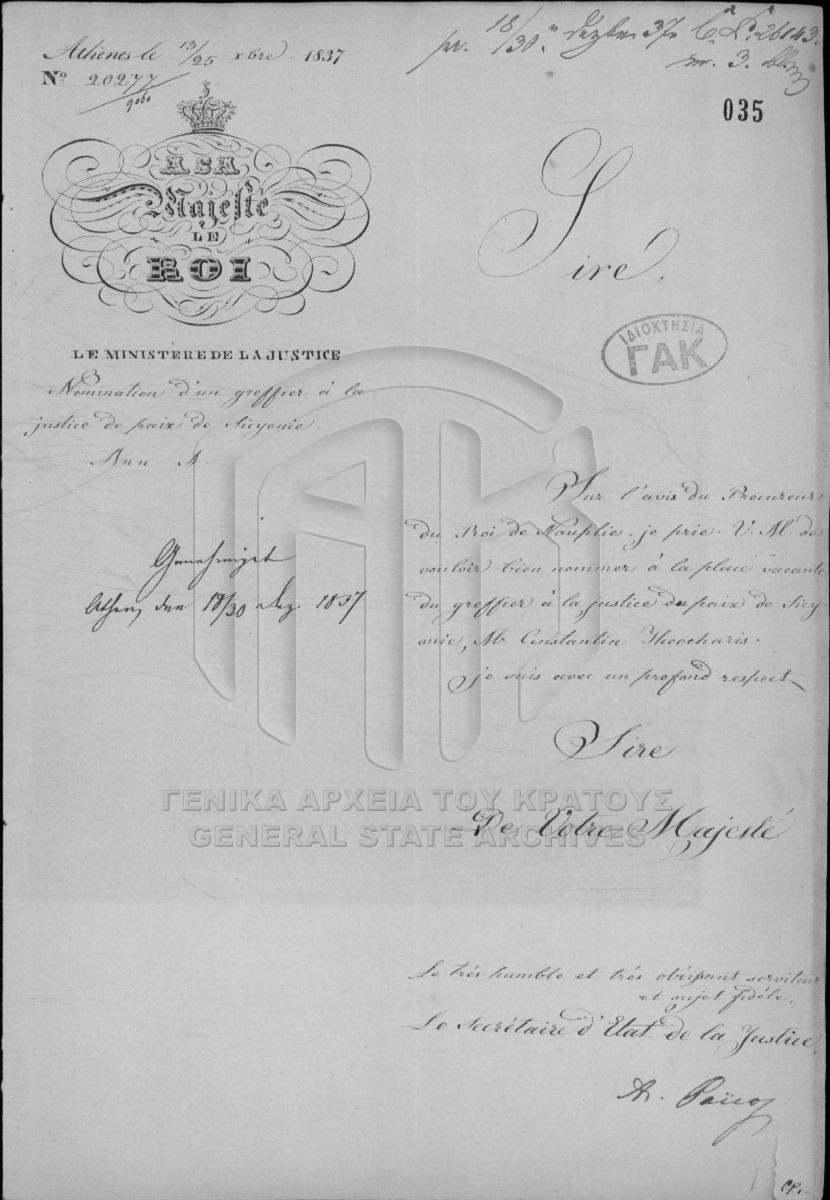 Athènes le 13/25 xbre 1837
Nº 20277
9060
pr. 18/30 Dezbr 37 C. Nº 26143.
m. 3.
035
A SA
Majesté
LE
ROI
LE MINISTERE DE LA JUSTICE
Nomination d'un greffier à la
justice de paix de Sicyonie.
Ann A.
Genehmigt
Athen, den 18/30 Dez. 1837
Sire,
ΙΔΙΟΚΤΗΣΙΑ
ΓΑΚ
Sur l'avis du Procureur
du Roi de Nauplie, je prie V. M. de
vouloir bien nommer à la place vacante
du greffier à la justice de paix de Sicy-
onie, Mr Constantin Theocharis.
je suis avec un profond respect
Sire
De Votre Majesté
ΓΕΝΙΚΑ ΑΡΧΕΙΑ ΤΟΥ ΚΡΑΤΟΥΣ
GENERAL STATE ARCHIVES
Le très-humble et très obéissant serviteur
et sujet fidèle,
Le Secrétaire d'Etat de la Justice,
A. Païcos